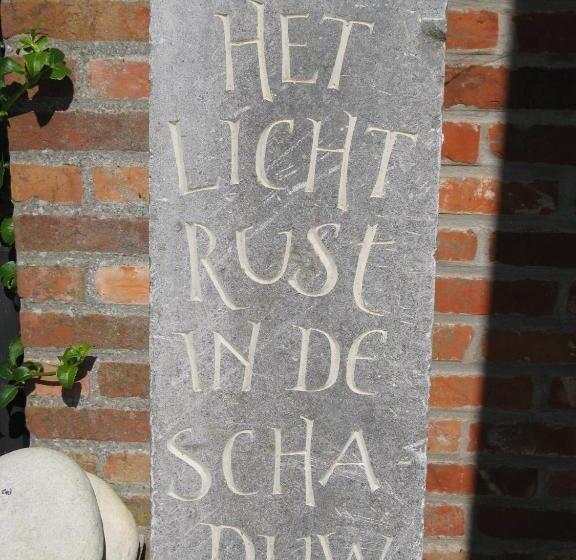 HET
LICHT
RUSt
IN DE
SCHA-
DUW